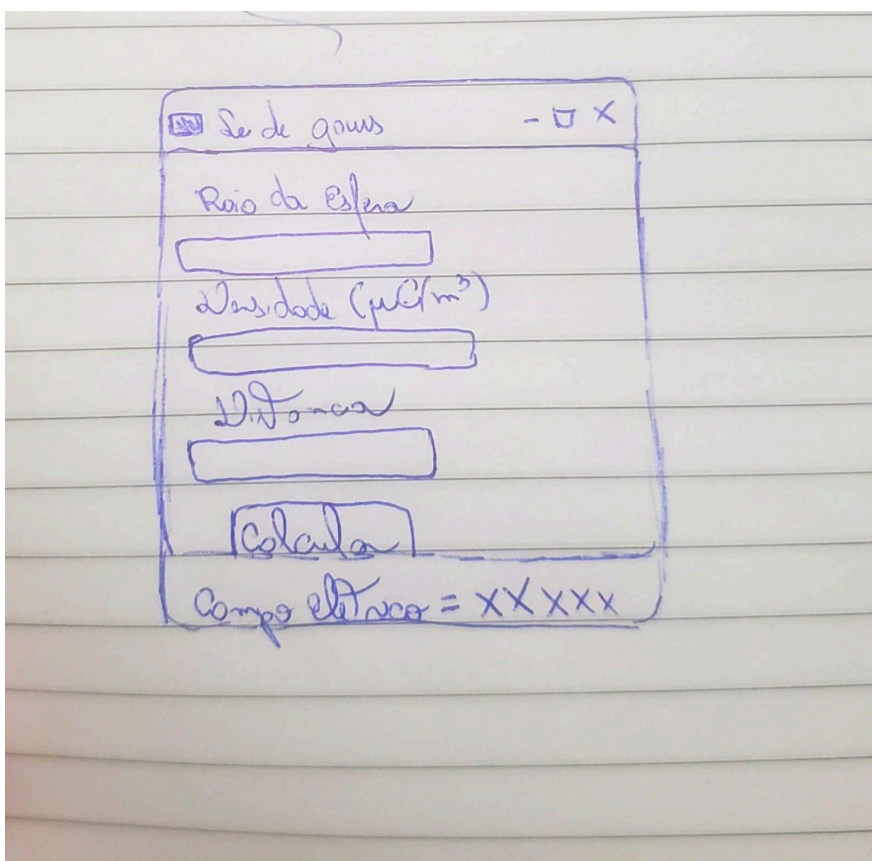 Lei de gauss - □ X
Raio da Esfera
Densidade (μC/m³)
Distancia
Calcular
Campo elétrico = XXXXX